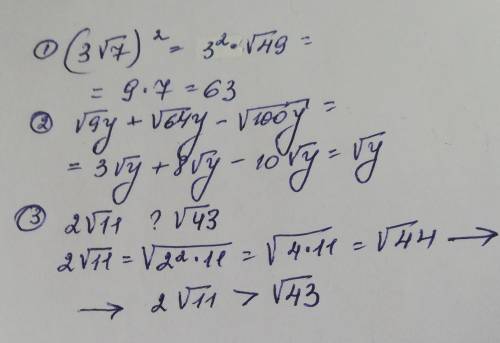 ① (3√7)² = 3²·√49 =
= 9·7 = 63
② √9y + √64y - √100y =
= 3√y + 8√y - 10√y = √y
③ 2√11 ? √43
2√11 = √2²·11 = √4·11 = √44 →
→ 2√11 > √43